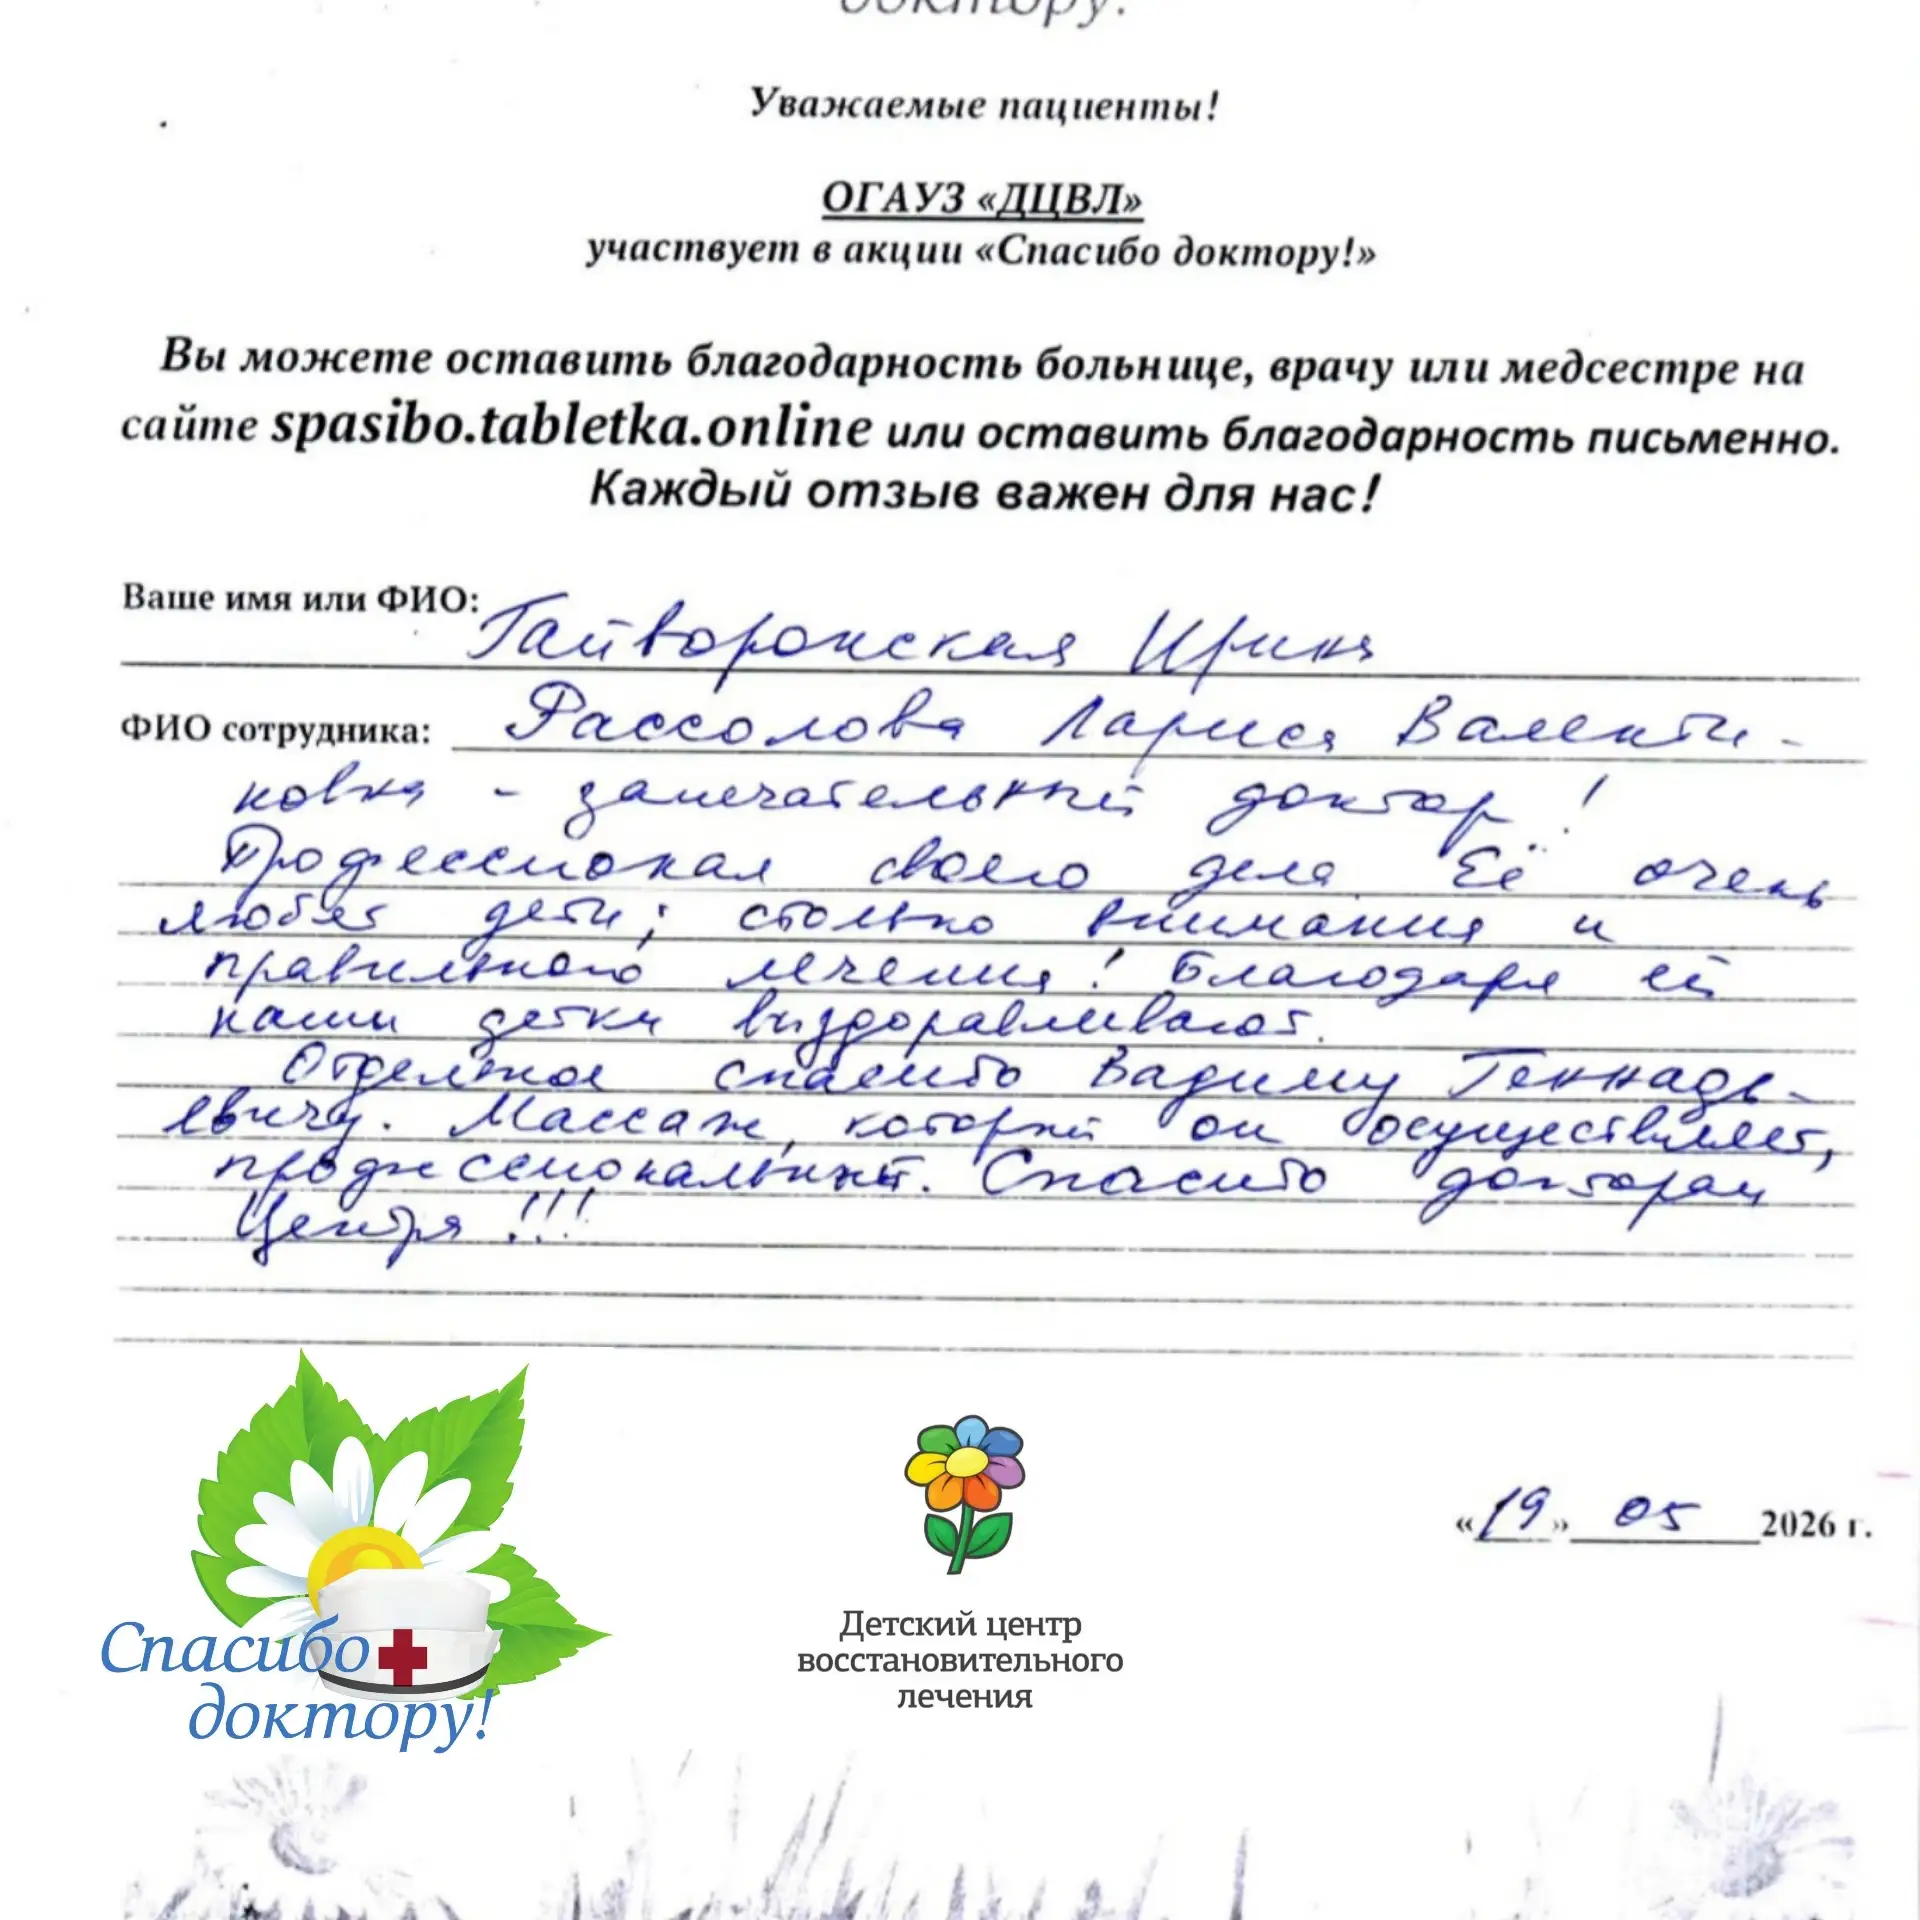 доктору!
Уважаемые пациенты!
ОГАУЗ «ДЦВЛ»
участвует в акции «Спасибо доктору!»
Вы можете оставить благодарность больнице, врачу или медсестре на
сайте spasibo.tabletka.online или оставить благодарность письменно.
Каждый отзыв важен для нас!
Ваше имя или ФИО: Гайворонская Ирина
ФИО сотрудника: Рассолова Лариса Валенти-
новна - замечательный доктор!
Профессионал своего дела. Её очень
любят дети; столько внимания и
правильного лечения! Благодаря ей
наши детки выздоравливают.
Отдельное спасибо Вадиму Геннадь-
евичу. Массаж, который он осуществляет,
профессиональный. Спасибо докторам
Центра!!!
«19» 05 2026 г.
Спасибо
доктору!
Детский центр
восстановительного
лечения